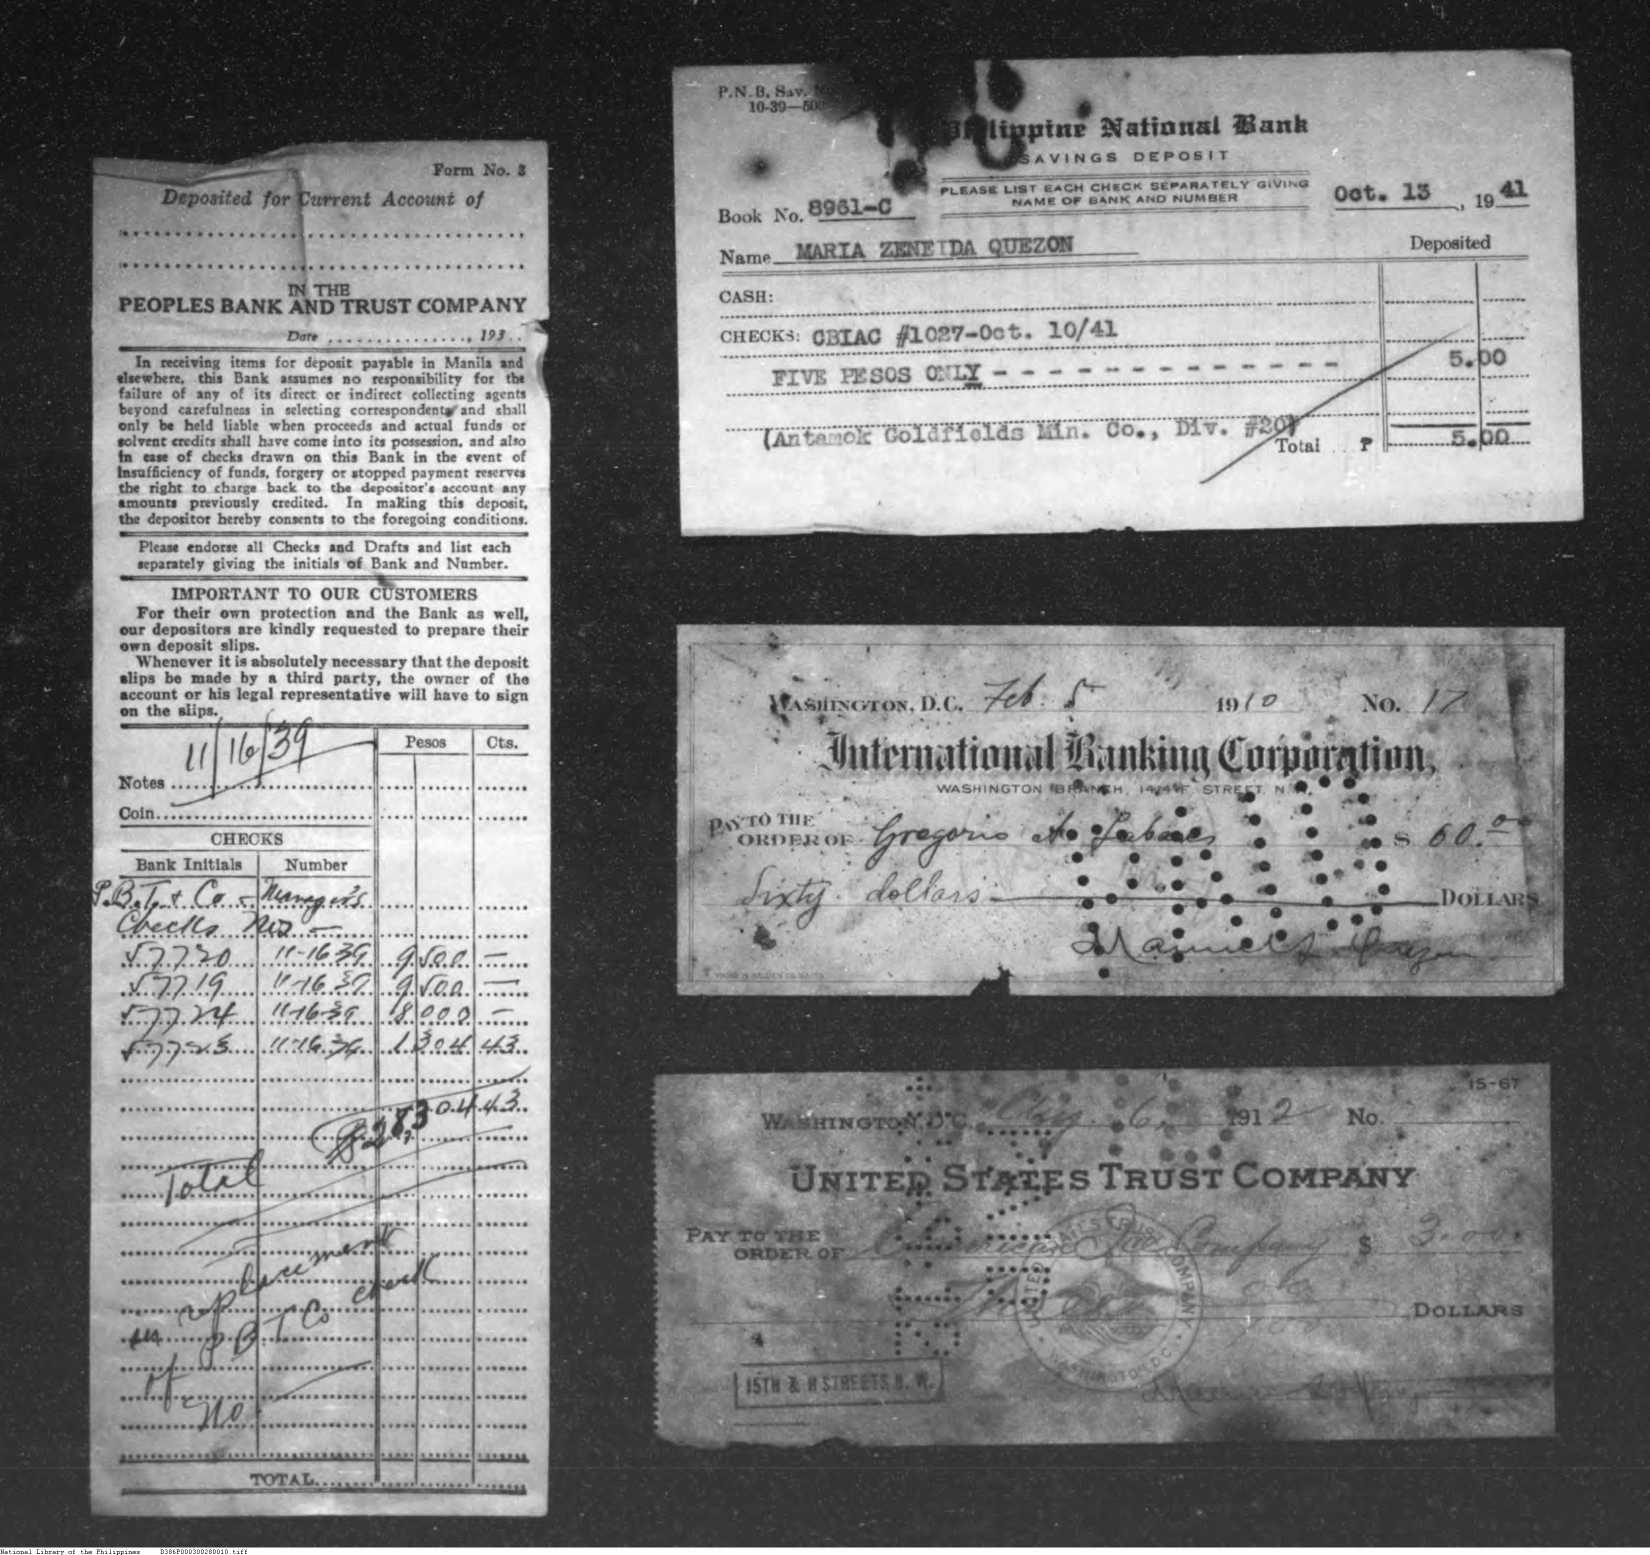 Form No. 3
Deposited for Current Account of
IN THE
PEOPLES BANK AND TRUST COMPANY
Date ..............., 193..
In receiving items for deposit payable in Manila and
elsewhere, this Bank assumes no responsibility for the
failure of any of its direct or indirect collecting agents
beyond carefulness in selecting correspondents and shall
only be held liable when proceeds and actual funds or
solvent credits shall have come into its possession, and also
in case of checks drawn on this Bank in the event of
insufficiency of funds, forgery or stopped payment reserves
the right to charge back to the depositor's account any
amounts previously credited. In making this deposit,
the depositor hereby consents to the foregoing conditions.
Please endorse all Checks and Drafts and list each
separately giving the initials of Bank and Number.
IMPORTANT TO OUR CUSTOMERS
For their own protection and the Bank as well,
our depositors are kindly requested to prepare their
own deposit slips.
Whenever it is absolutely necessary that the deposit
slips be made by a third party, the owner of the
account or his legal representative will have to sign
on the slips.
11/16/39
Pesos Cts.
Notes
Coin
CHECKS
Bank Initials Number
P.B.T. & Co - Manager's
Checks Nos -
57720 11-16-39 9 500 —
57719 11-16-39 9 500 —
57724 11-16-39 8 000 —
57723 11-16-39 1 304 43
28,304.43
Total
in replacement
of P B T Co check
No.
TOTAL
P.N.B. Sav.
10-39—500
Philippine National Bank
SAVINGS DEPOSIT
PLEASE LIST EACH CHECK SEPARATELY GIVING
NAME OF BANK AND NUMBER
Book No. 8961-C
Oct. 13, 1941
Name MARIA ZENEIDA QUEZON
Deposited
CASH:
CHECKS: CBIAC #1027-Oct. 10/41
FIVE PESOS ONLY - - - - - - - - - - - - - 5.00
(Antamok Goldfields Min. Co., Div. #20)
Total .. ₱ 5.00
WASHINGTON, D.C. Feb. 5 1910 NO. 17
International Banking Corporation,
WASHINGTON BRANCH, 1414 F. STREET, N.W.
PAY TO THE
ORDER OF Gregorio A. $ 60.00
Sixty dollars DOLLARS
Manuel L. Quezon
15-67
WASHINGTON, D.C. 6, 1912 No.
UNITED STATES TRUST COMPANY
PAY TO THE
ORDER OF American Company $ 3.00
Three DOLLARS
UNITED STATES TRUST COMPANY
WASHINGTON D.C.
15TH & H STREETS N. W.
National Library of the Philippines D386P000300280010.tiff